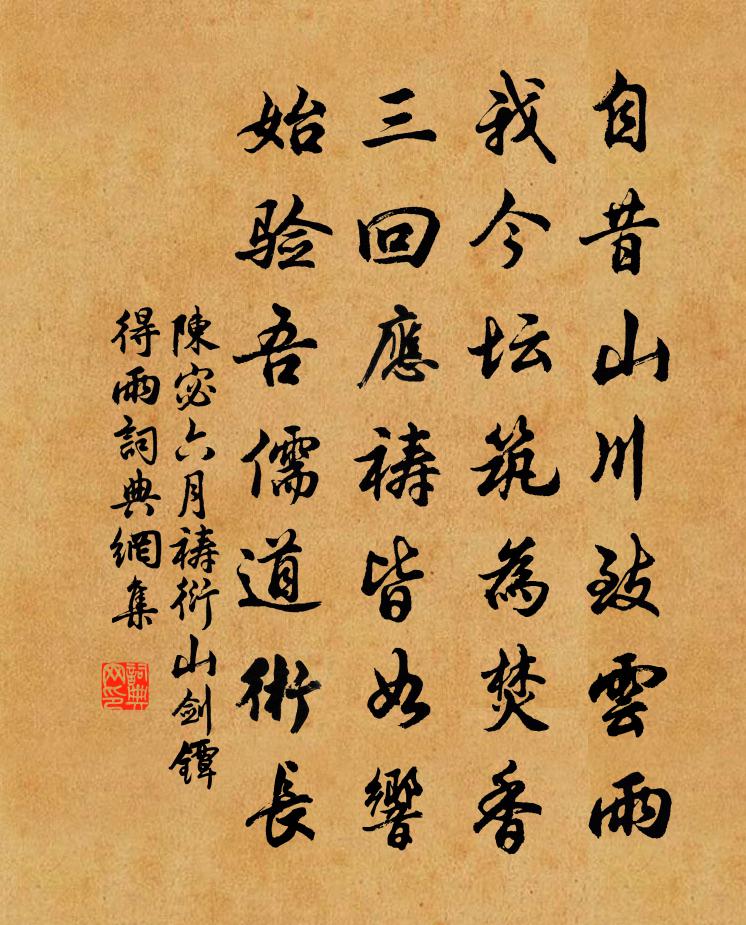 自昔山川致雲雨
我今坛筑為焚香
三回應祷皆如響
始验吾儒道術長
陳宓六月祷衍山剑鐔
得雨詞典網集
詞典网印